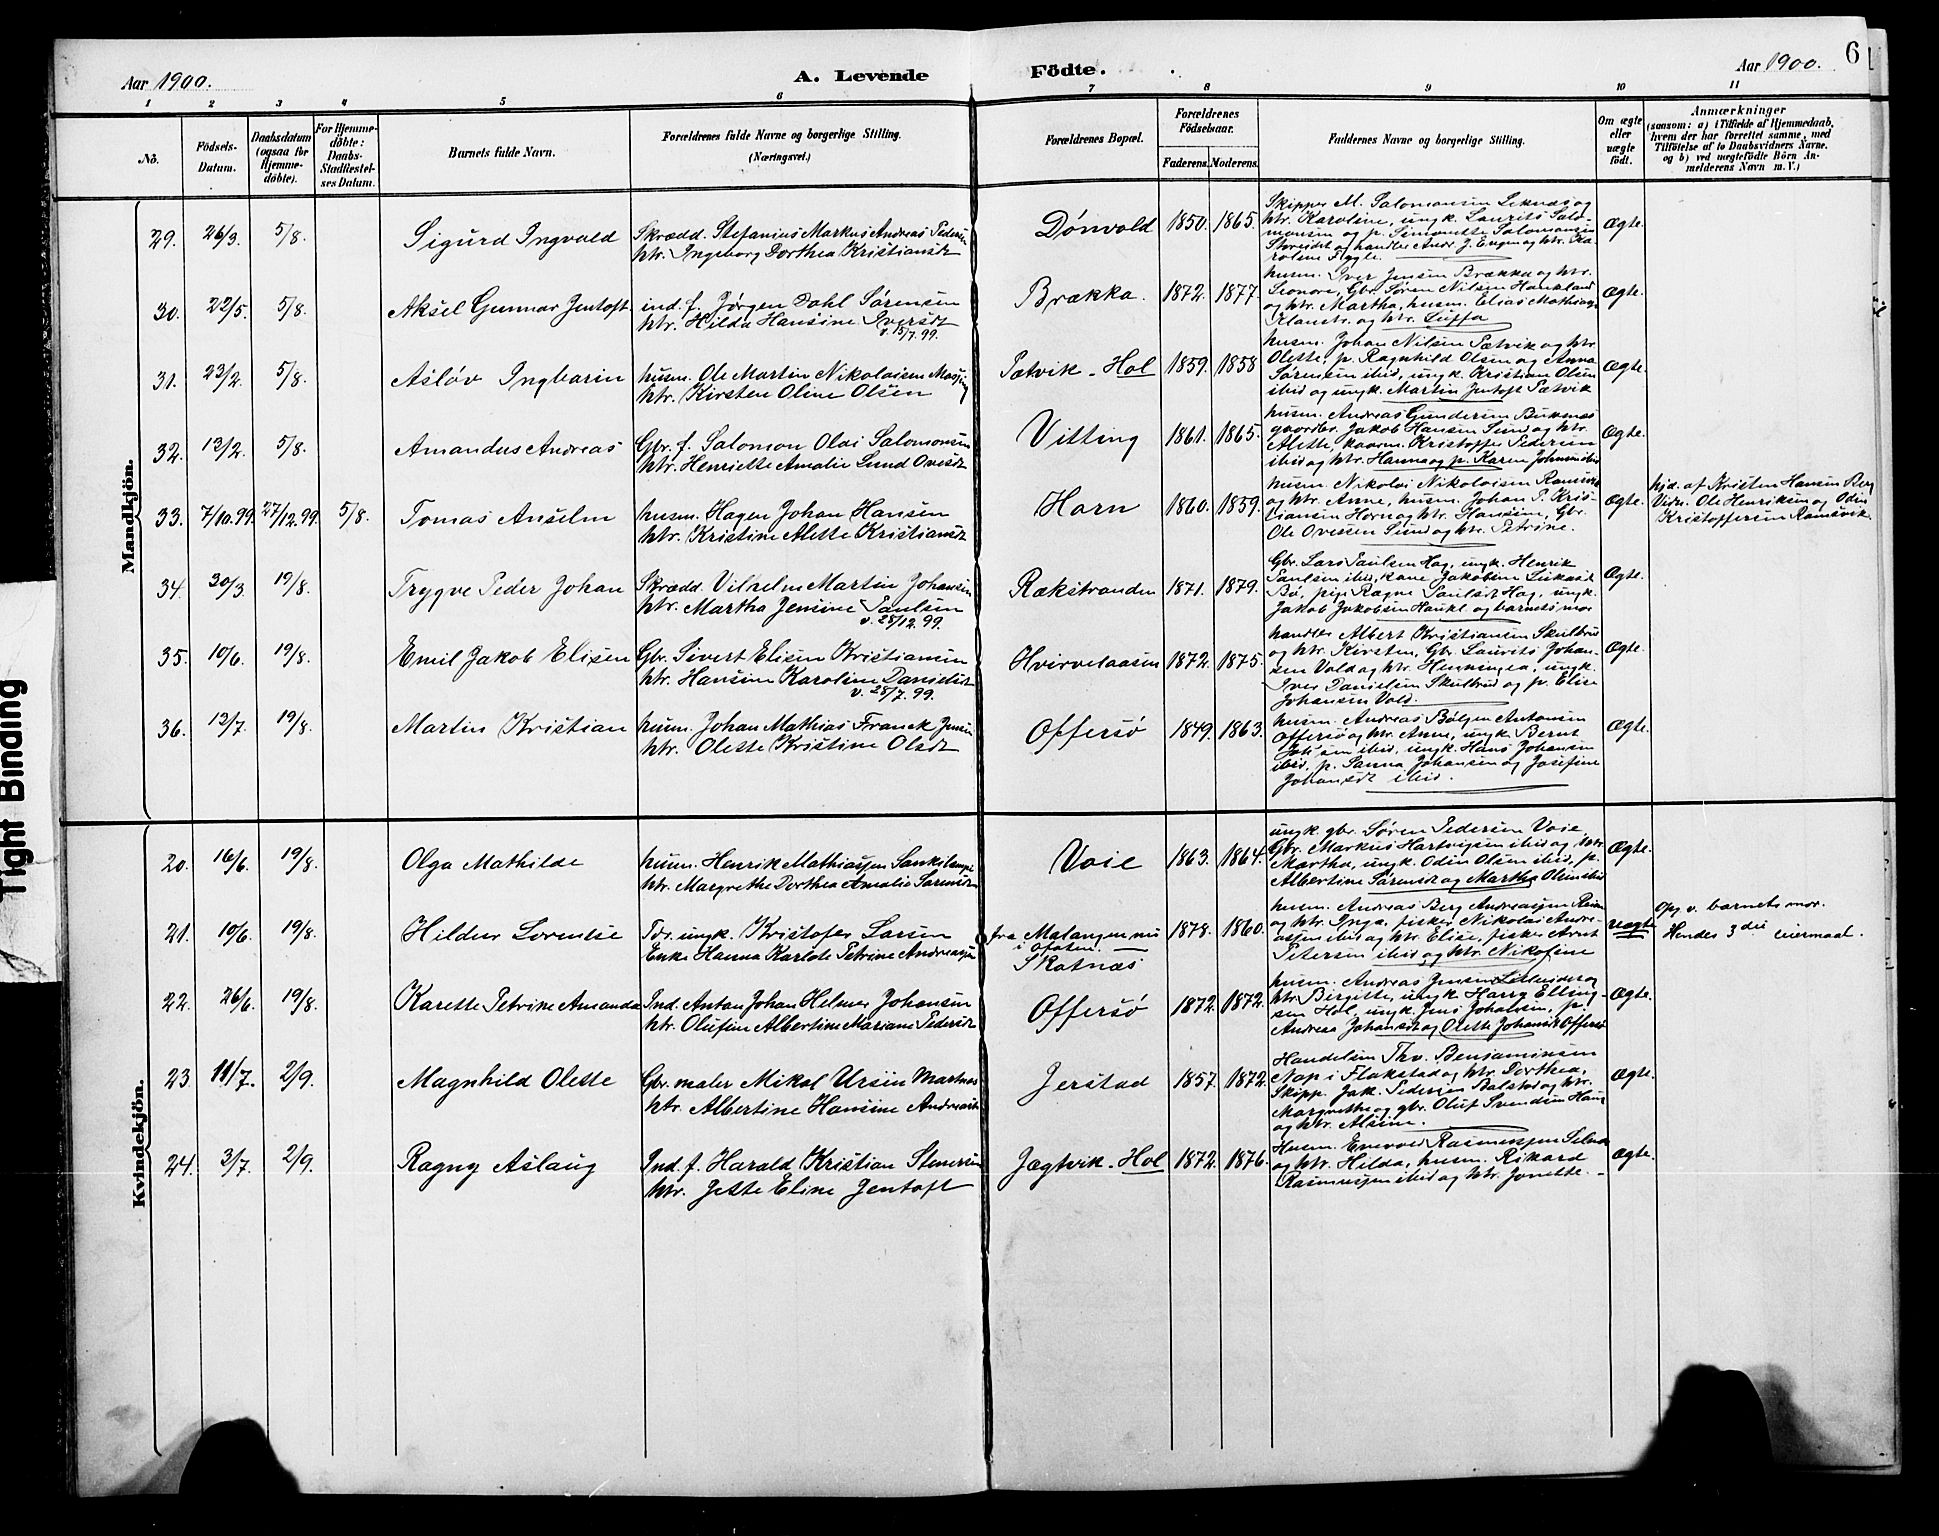 6
Aar 1900.
A. Levende Födte.
Aar 1900.
1 2 3 4 5 6 7 8 9 10 11
No.
Födsels-Datum.
Daabsdatum (ogsaa for Hjemme-döbte).
For Hjemme-döbte: Daabs-Stadfæstel-ses Datum.
Barnets fulde Navn.
Forældrenes fulde Navne og borgerlige Stilling.
(Næringsvei.)
Forældrenes Bopæl.
Forældrenes Födselsaar.
Faderens. Moderens.
Faddernes Navne og borgerlige Stilling.
Om ægte eller uægte födt.
Anmærkninger
(saasom: a) i Tilfælde af Hjemmedaab, hvem der har forrettet samme, med Tilföielse af to Daabsvidners Navne, og b) ved uægtefödte Börn An-melderens Navn m. V.)
Mandkjön.
29. 26/3. 5/8. Sigurd Ingvald
Skrædd. Stefanius Markus Andreas Pedersen
htr. Ingeborg Dorthea Kristiansdt
Dønvold 1850. 1865.
Skipper M. Salomonsen Leknæs og
htr. Karoline, ungk. Laurits Salo-
monsen og p. Simonette Salomonsen
Storeidet og handler Andr. J. Eugen og htr. Ka-
roline Fygle.
Ægte.
30. 22/5. 5/8. Aksel Gunnar Jentoft
ind. f. Jørgen Dahl Sørensen
htr. Hilda Hansine Iversdt
v. 15/7.99.
Brækka. 1872. 1877.
husm. Iver Jensen Brækka og htr.
Leonore, Gbr. Søren Nilsen Haukland
og htr. Martha, husm. Elias Mathias
og htr. Luffa
Ægte.
31. 23/2. 5/8. Asløv Ingbarin
husm. Ole Martin Nikolaisen
htr. Kirsten Oline Olsen
Petvik - Hol 1859. 1858
husm. Johan Nilsen Petvik og htr.
Olette, p. Ragnhild Olsen og Anna
Sørensen ibid, ungk. Kristian Olsen
ibid og ungk. Martin Jentoft Petvik
Ægte.
32. 13/2. 5/8. Amandus Andreas
Gbr. f. Salomon Olai Salomonsen
htr. Henriette Amalie Lund Ovesdt
Vitting 1861. 1865.
husm. Andreas Gundersen Buknæs
gaardbr. Jakob Hansen Sund og htr.
Alette, kaarm. Kristoffer Pedersen
ibid og htr. Hanna og p. Karen Johnsen ibid
Ægte.
33. 7/10.99. 27/12.99. 5/8. Tomas Anselm
husm. Hagen Johan Hansen
htr. Kristine Alette Kristiansdt
Horn 1860. 1859.
husm. Nikolai Nikolaisen Ramsvik
og htr. Anne, husm. Johan P. Kris-
tiansen Horn og htr. Hansine, Gbr.
Ole Ovesen Sund og htr. Petrine.
Ægte.
hjd. af Kristen Hansen Berg
Vidn. Ole Henriksen og Odin
Kristoffersen Ramsvik
34. 30/3. 19/8. Trygve Peder Johan
Skrædd. Vilhelm Martin Johansen
htr. Martha Jensine Paulsen
v. 28/12.99.
Rækstranden 1871. 1879.
Gbr. Lars Paulsen Hag, ungk. Henrik
Paulsen ibid, kone Jakobine
Bø, pige Ragna Paulsdt Hag, ungk.
Jakob Jakobsen Haukl og barnets mor
Ægte.
35. 10/6. 19/8. Emil Jakob Elisen
Gbr. Sivert Elisen Kristiansen
htr. Hansine Karoline Danielsdt
v. 28/7.99.
Hvirvelaasen 1872. 1875.
handler Albert Kristiansen Skulbru
og htr. Kirsten, Gbr. Laurits Johan-
sen Vold og htr. Henningea, ungk.
Iver Danielsen Skulbru og p. Elise
Johansen Vold.
Ægte.
36. 12/7. 19/8. Martin Kristian
husm. Johan Mathias Franck Jensen
htr. Olette Kristine Olsdt
Offersø 1849. 1863.
husm. Andreas Bølgen Antonsen
Offersø og htr. Anne, ungk. Bernt
ibid, ungk. Hans Johansen
ibid, p. Sanna Johansen og Josefine
Johansdt ibid.
Ægte.
Kvindekjön.
20. 16/6. 19/8. Olga Mathilde
husm. Henrik Mathiassen
htr. Margrethe Dorthea Amalie Sørensdt
Voie 1863. 1864.
ungk. gbr. Søren Pedersen Voie,
Gbr. Markus Hartvigsen ibid og htr.
Martha, ungk. Odin Olsen ibid, p.
Albertine Sørensdt og Martha Olsen ibid
Ægte.
21. 10/6. 19/8. Hildur Lorentse
Tør. ungk. Kristofer Larsen
Enke Hanna Karlote Petrine Andreassen
fra Malangen nu
i Ofoten.
Skotnæs
1878. 1860.
husm. Andreas Berg Andreassen
og htr. Inga, fisker Nikolai Andre-
assen ibid og htr. Elise, fisker Arnt
Petersen ibid og htr. Nikoline
uægte
Opg v. barnets mor.
Hendes 3die leiermaal.
22. 26/6. 19/8. Karette Petrine Amanda
Ind. Anton Johan Helmer Johansen
htr. Olufine Albertine Mariane Pedersdt
Offersø 1872. 1872.
husm. Andreas Jensen og
htr. Birgitte, ungk. Harry Elling-
sen Hol, ungk. Jens Johansen, p.
Andrea Johansdt og Olette Johansdt Offersø
Ægte.
23 11/7. 2/9. Magnhild Olette
Gbr. maler Mikal Ursin Martnes
htr. Albertine Hansine Andreasdt
Jerstad 1857. 1872.
Handelsm Thv. Benjaminsen
Nap i Flakstad og htr. Dorthea,
Skipp. Jak. Pedersen Balstad og htr.
Margrethe og gbr. Oluf Svendsen
og htr. Alsine.
Ægte.
24. 3/7. 2/9. Ragny Aslaug
Ind. f. Harald Kristian Stenersen
htr. Jette Eline Jentoft
Jægtvik - Hol 1872. 1876.
Husm. Enevold Rasmussen
og htr. Hilda, husm. Rikard
Rasmussen ibid og htr. Jonette.
Ægte.
Tight Binding